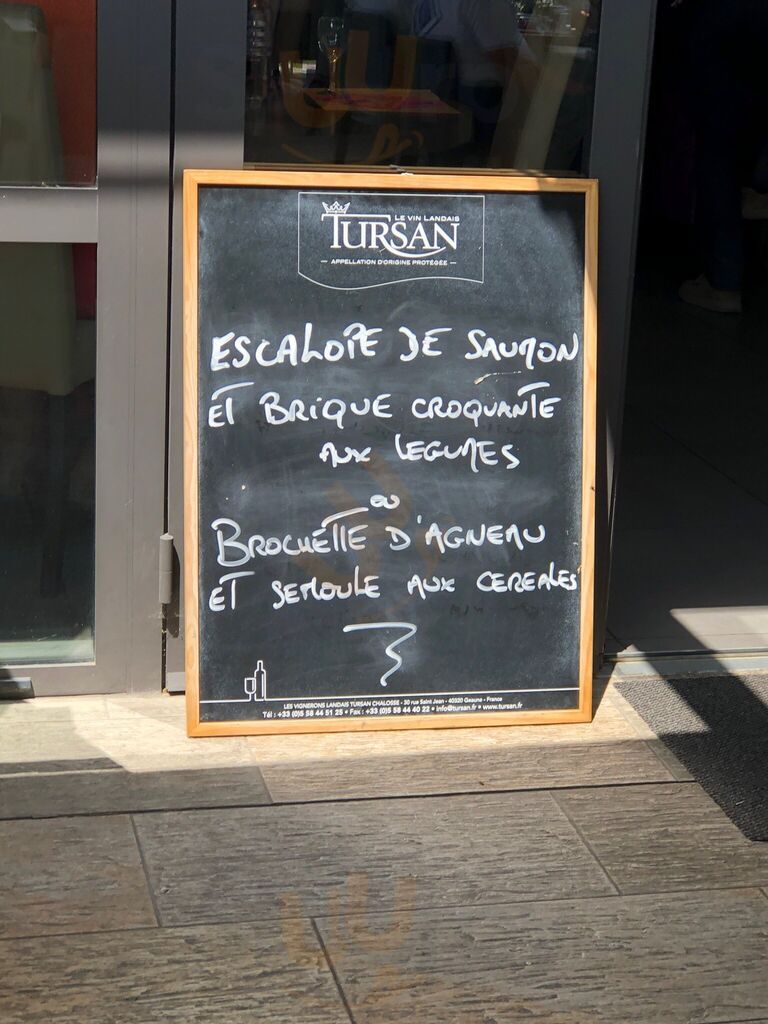 LE VIN LANDAIS
TURSAN
APPELLATION D'ORIGINE PROTÉGÉE
ESCALOPE DE SAUMON
ET BRIQUE CROQUANTE
AUX LEGUMES
ou
BROCHETTE D'AGNEAU
ET SEMOULE AUX CEREALES
LES VIGNERONS LANDAIS TURSAN CHALOSSE - 30 rue Saint Jean - 40320 Geaune - France
Tél : +33 (0)5 58 44 51 25 • Fax : +33 (0)5 58 44 40 22 • info@tursan.fr • www.tursan.fr